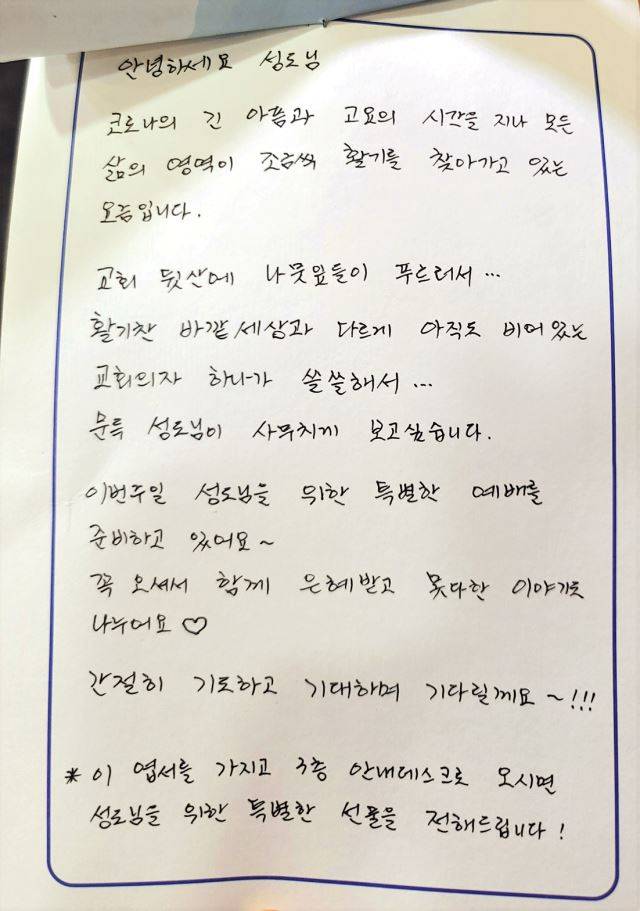 안녕하세요 성도님
코로나의 긴 아픔과 고요의 시간을 지나 모든
삶의 영역이 조금씩 활기를 찾아가고 있는
요즘입니다.
교회 뒷산에 나뭇잎들이 푸르러서...
활기찬 바깥세상과 다르게 아직도 비어있는
교회의자 하나가 쓸쓸해서...
문득 성도님이 사무치게 보고싶습니다.
이번주일 성도님을 위한 특별한 예배를
준비하고 있어요~
꼭 오셔서 함께 은혜받고 못다한 이야기도
나누어요♡
간절히 기도하고 기대하며 기다릴께요~!!!
* 이 엽서를 가지고 3층 안내데스크로 오시면
성도님을 위한 특별한 선물을 전해드립니다!